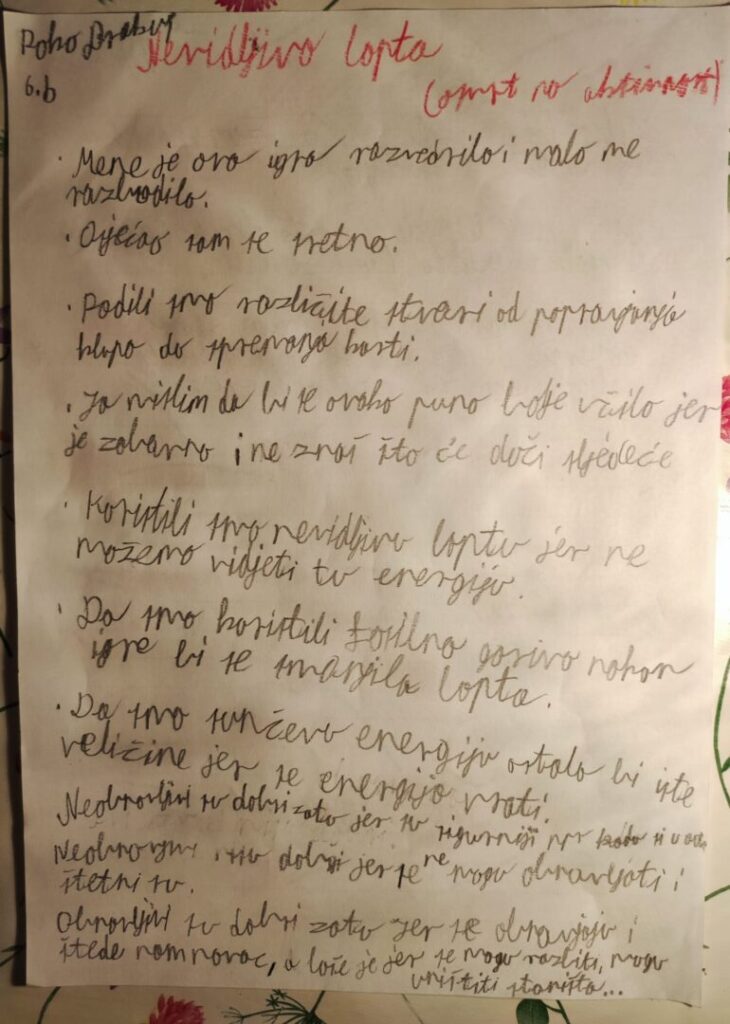 Roko
6.b
Nevidljiva lopta
(osvrt na aktivnost)
· Mene je ova igra razvedrila i malo me
razbudila.
· Osjećao sam se sretno.
· Radili smo različite stvari od popravljanja
klupa do spremanja karti.
· Ja mislim da bi se ovako puno bolje učilo jer
je zabavno i ne znaš što će doći sljedeće
· Koristili smo nevidljivu loptu jer ne
možemo vidjeti tu energiju.
· Da smo koristili fosilno gorivo nakon
igre bi se smanjila lopta.
· Da smo sunčevu energiju ostala bi iste
veličine jer se energija vrati.
Neobnovljivi su dobri zato jer su sigurniji npr kada si u
su jer se ne mogu obnavljati i
štetni su.
Obnovljivi su dobri zato jer se obnavljaju i
štede nam novac, a loše je jer se mogu razliti, mogu
uništiti staništa...